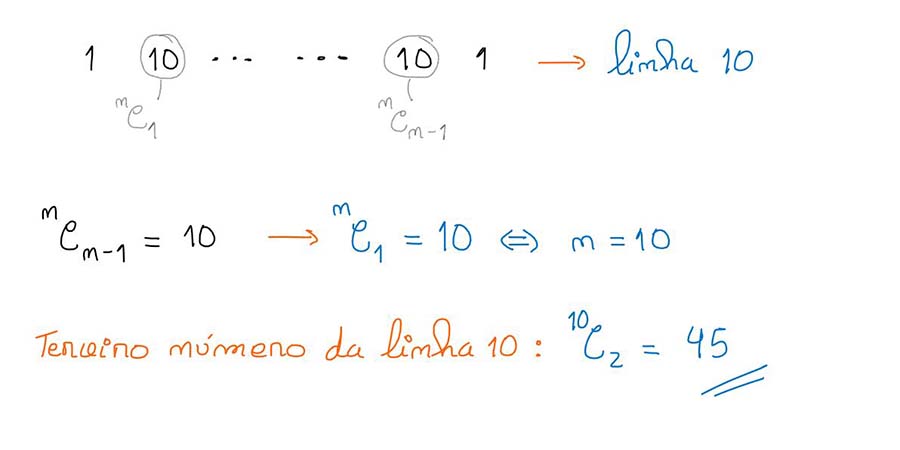 1 10 ... ... 10 1 → linha 10
ⁿC₁ ⁿCₙ₋₁
ⁿCₙ₋₁ = 10 → ⁿC₁ = 10 ⇔ n = 10
Terceiro número da linha 10 : ¹⁰C₂ = 45